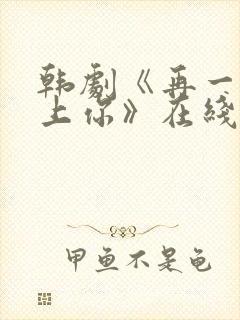 韩剧《再一
上你》在线
甲鱼不是龟